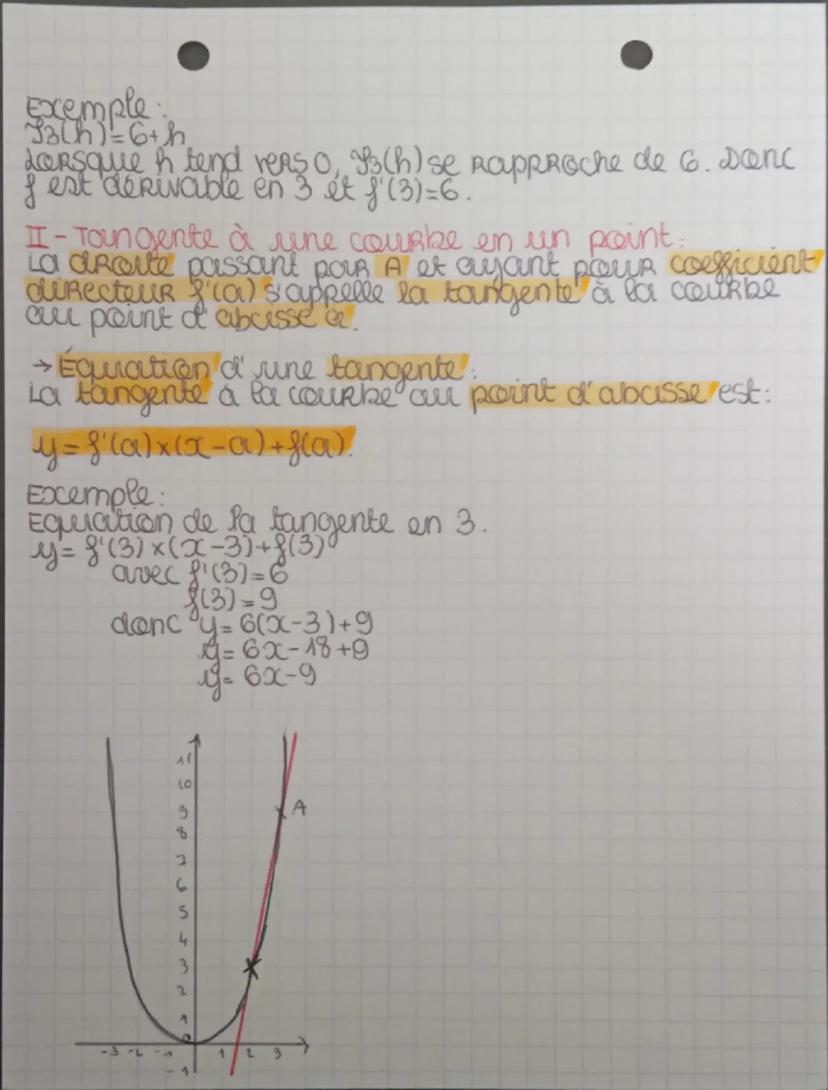 Exemple:
T3(h)=6+h
Lorsque h tend vers 0, T3(h) se rapproche de 6. Donc
f est dérivable en 3 et f'(3)=6.
II-Tangente à une courbe en un point:
La droite passant pour A et ayant pour coefficient
directeur f'(a) s'appelle la tangente à la courbe
au point d'abcisse a.
→ Équation d'une tangente:
La tangente à la courbe au point d'abcisse est:
y=f'(a)×(x-a)+f(a).
Exemple:
Equation de la tangente en 3.
y= f'(3)×(x-3)+f(3)
avec f'(3)=6
f(3)=9
donc y= 6(x-3)+9
y= 6x-18+9
y= 6x-9
11
10
9 A
8
7
6
5
4
3
2
1
0
-3 -2 -1 1 2 3
-1